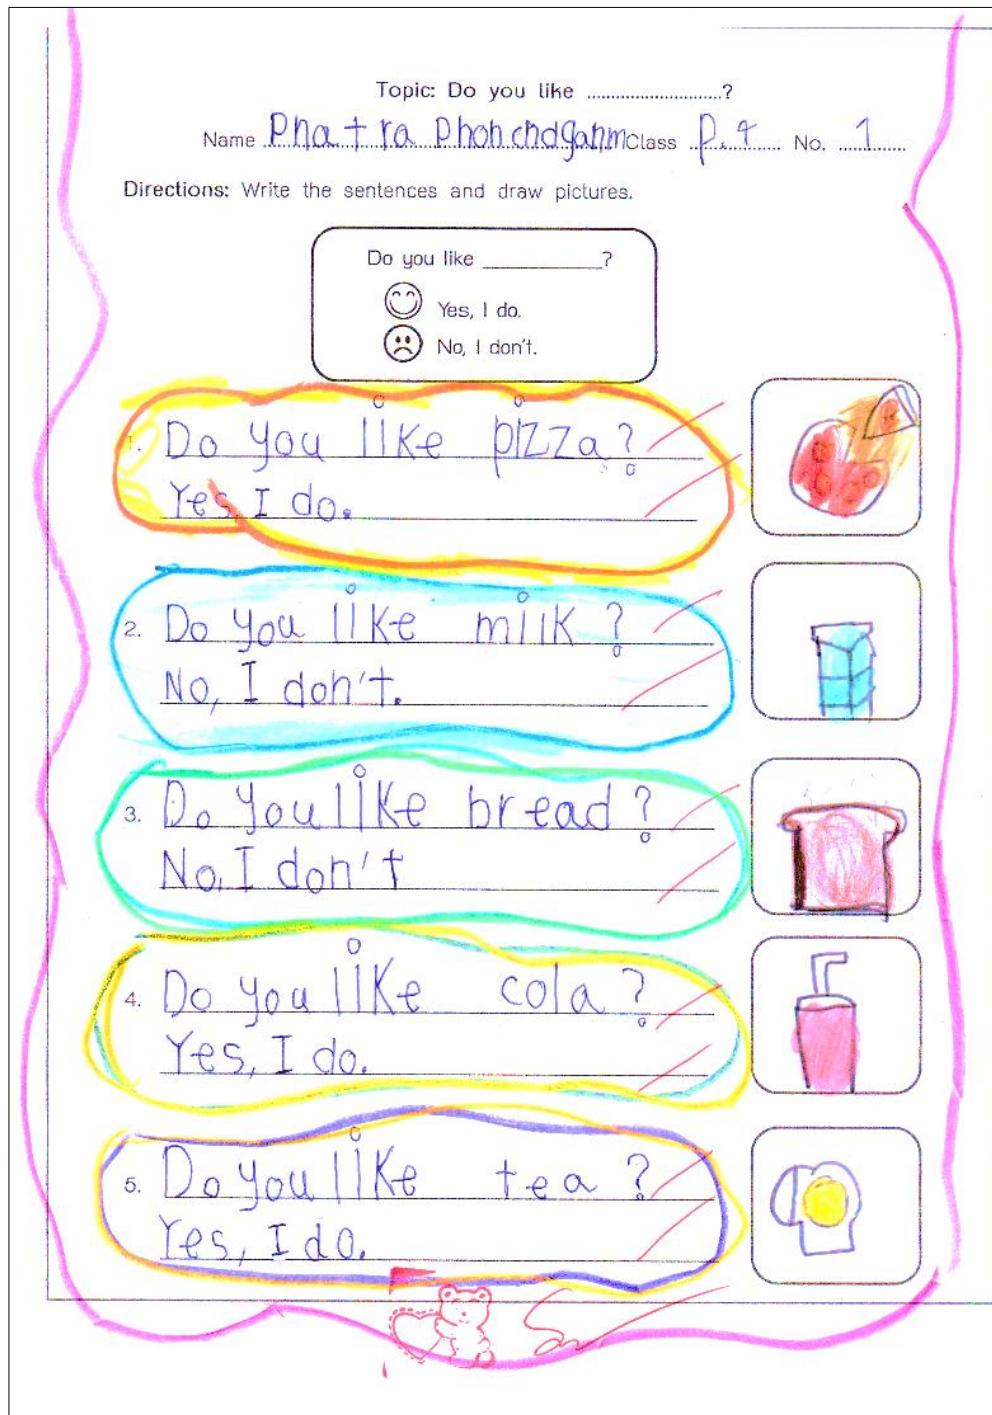 Topic: Do you like ............................?
Name Class No. 1
Directions: Write the sentences and draw pictures.
Do you like ____________?
Yes, I do.
No, I don't.
1. Do you like pizza?
Yes, I do.
2. Do you like milk?
No, I don't.
3. Do you like bread?
No, I don't
4. Do you like cola?
Yes, I do.
5. Do you like tea?
Yes, I do.